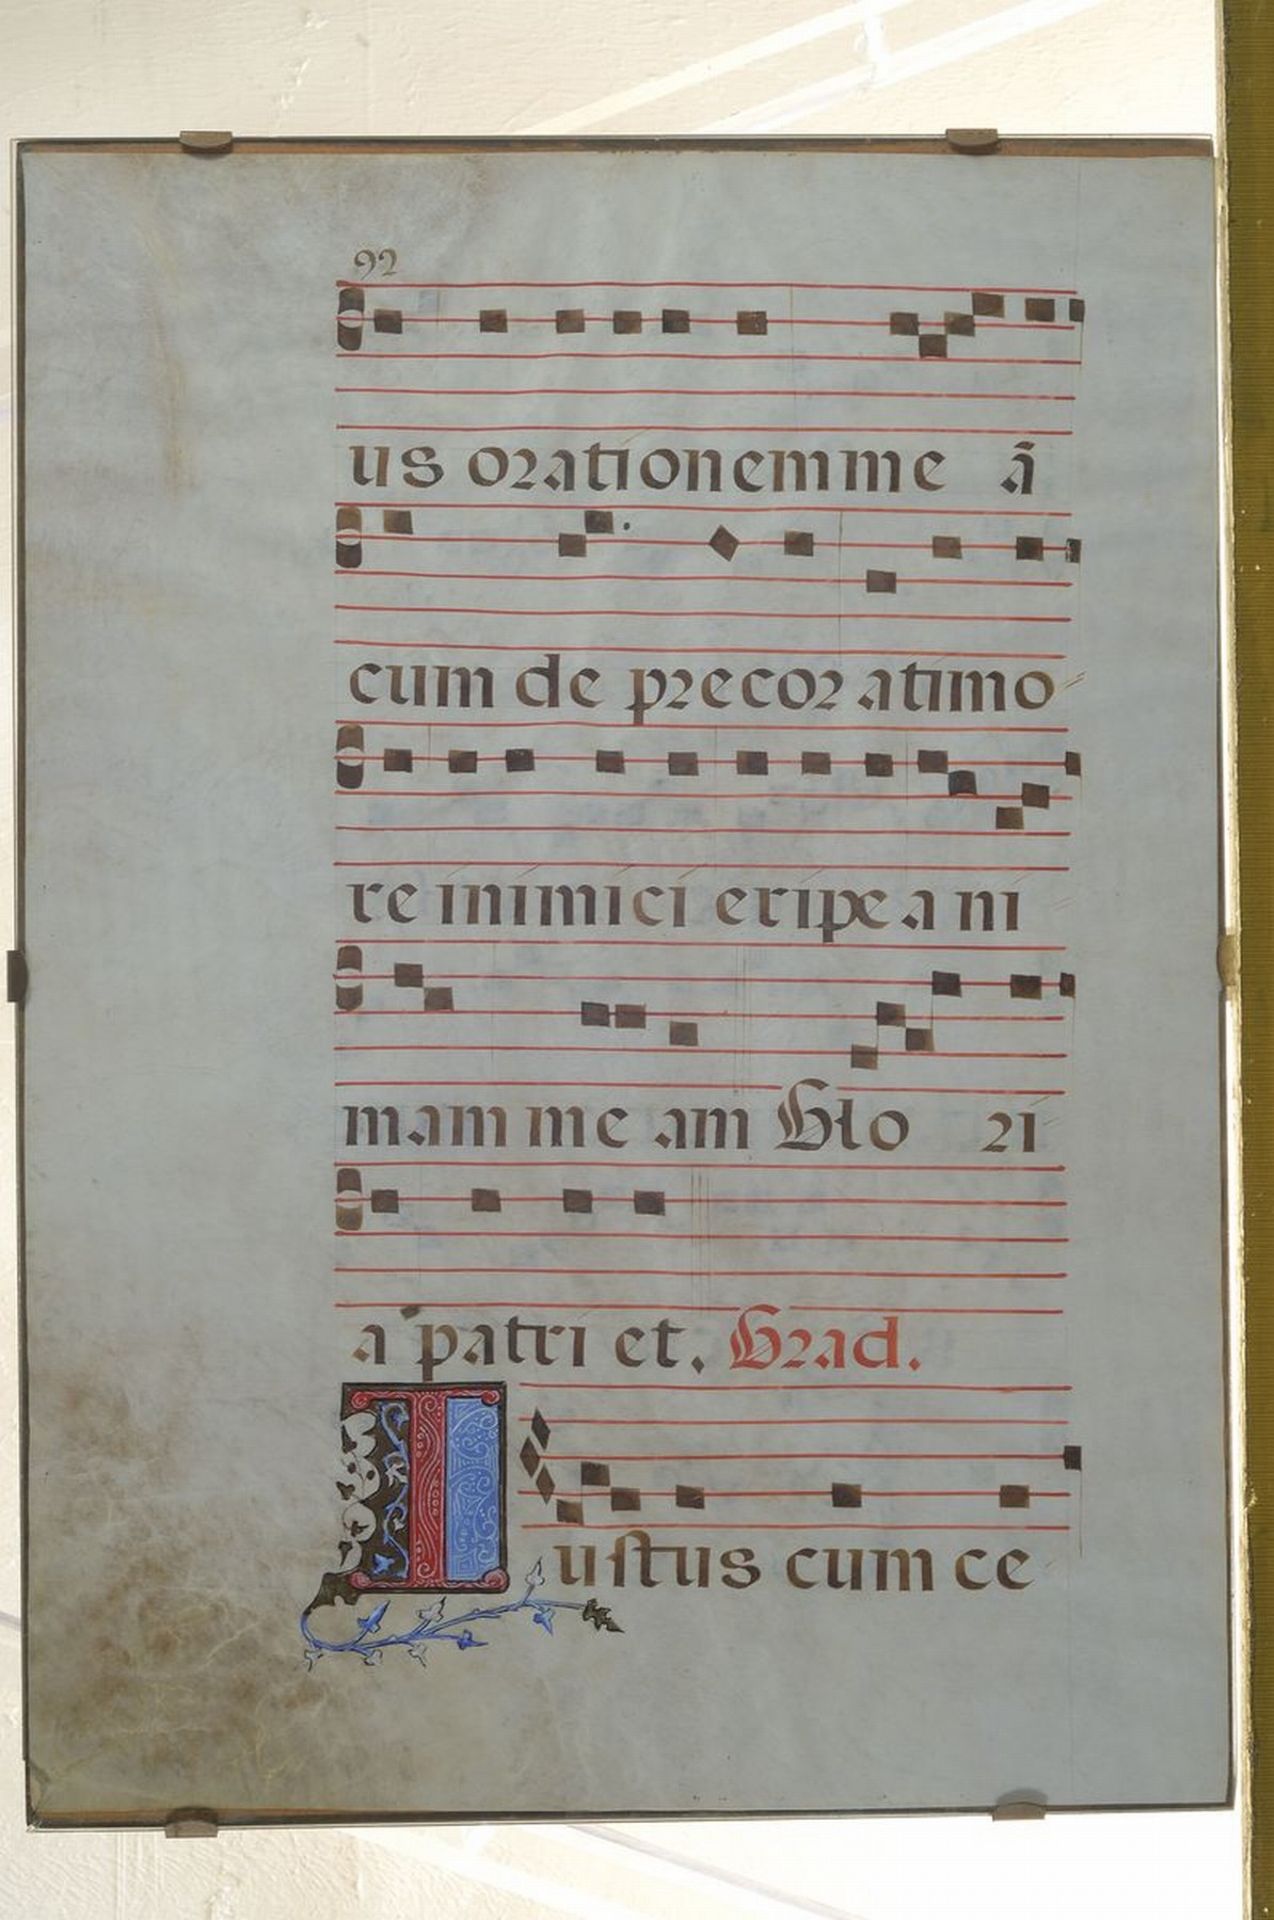 92
us orationem me ā
cum deprecor a timo
re inimici eripe ani
mam me am Glo ri
a patri et. Grad.
Iustus cum ce